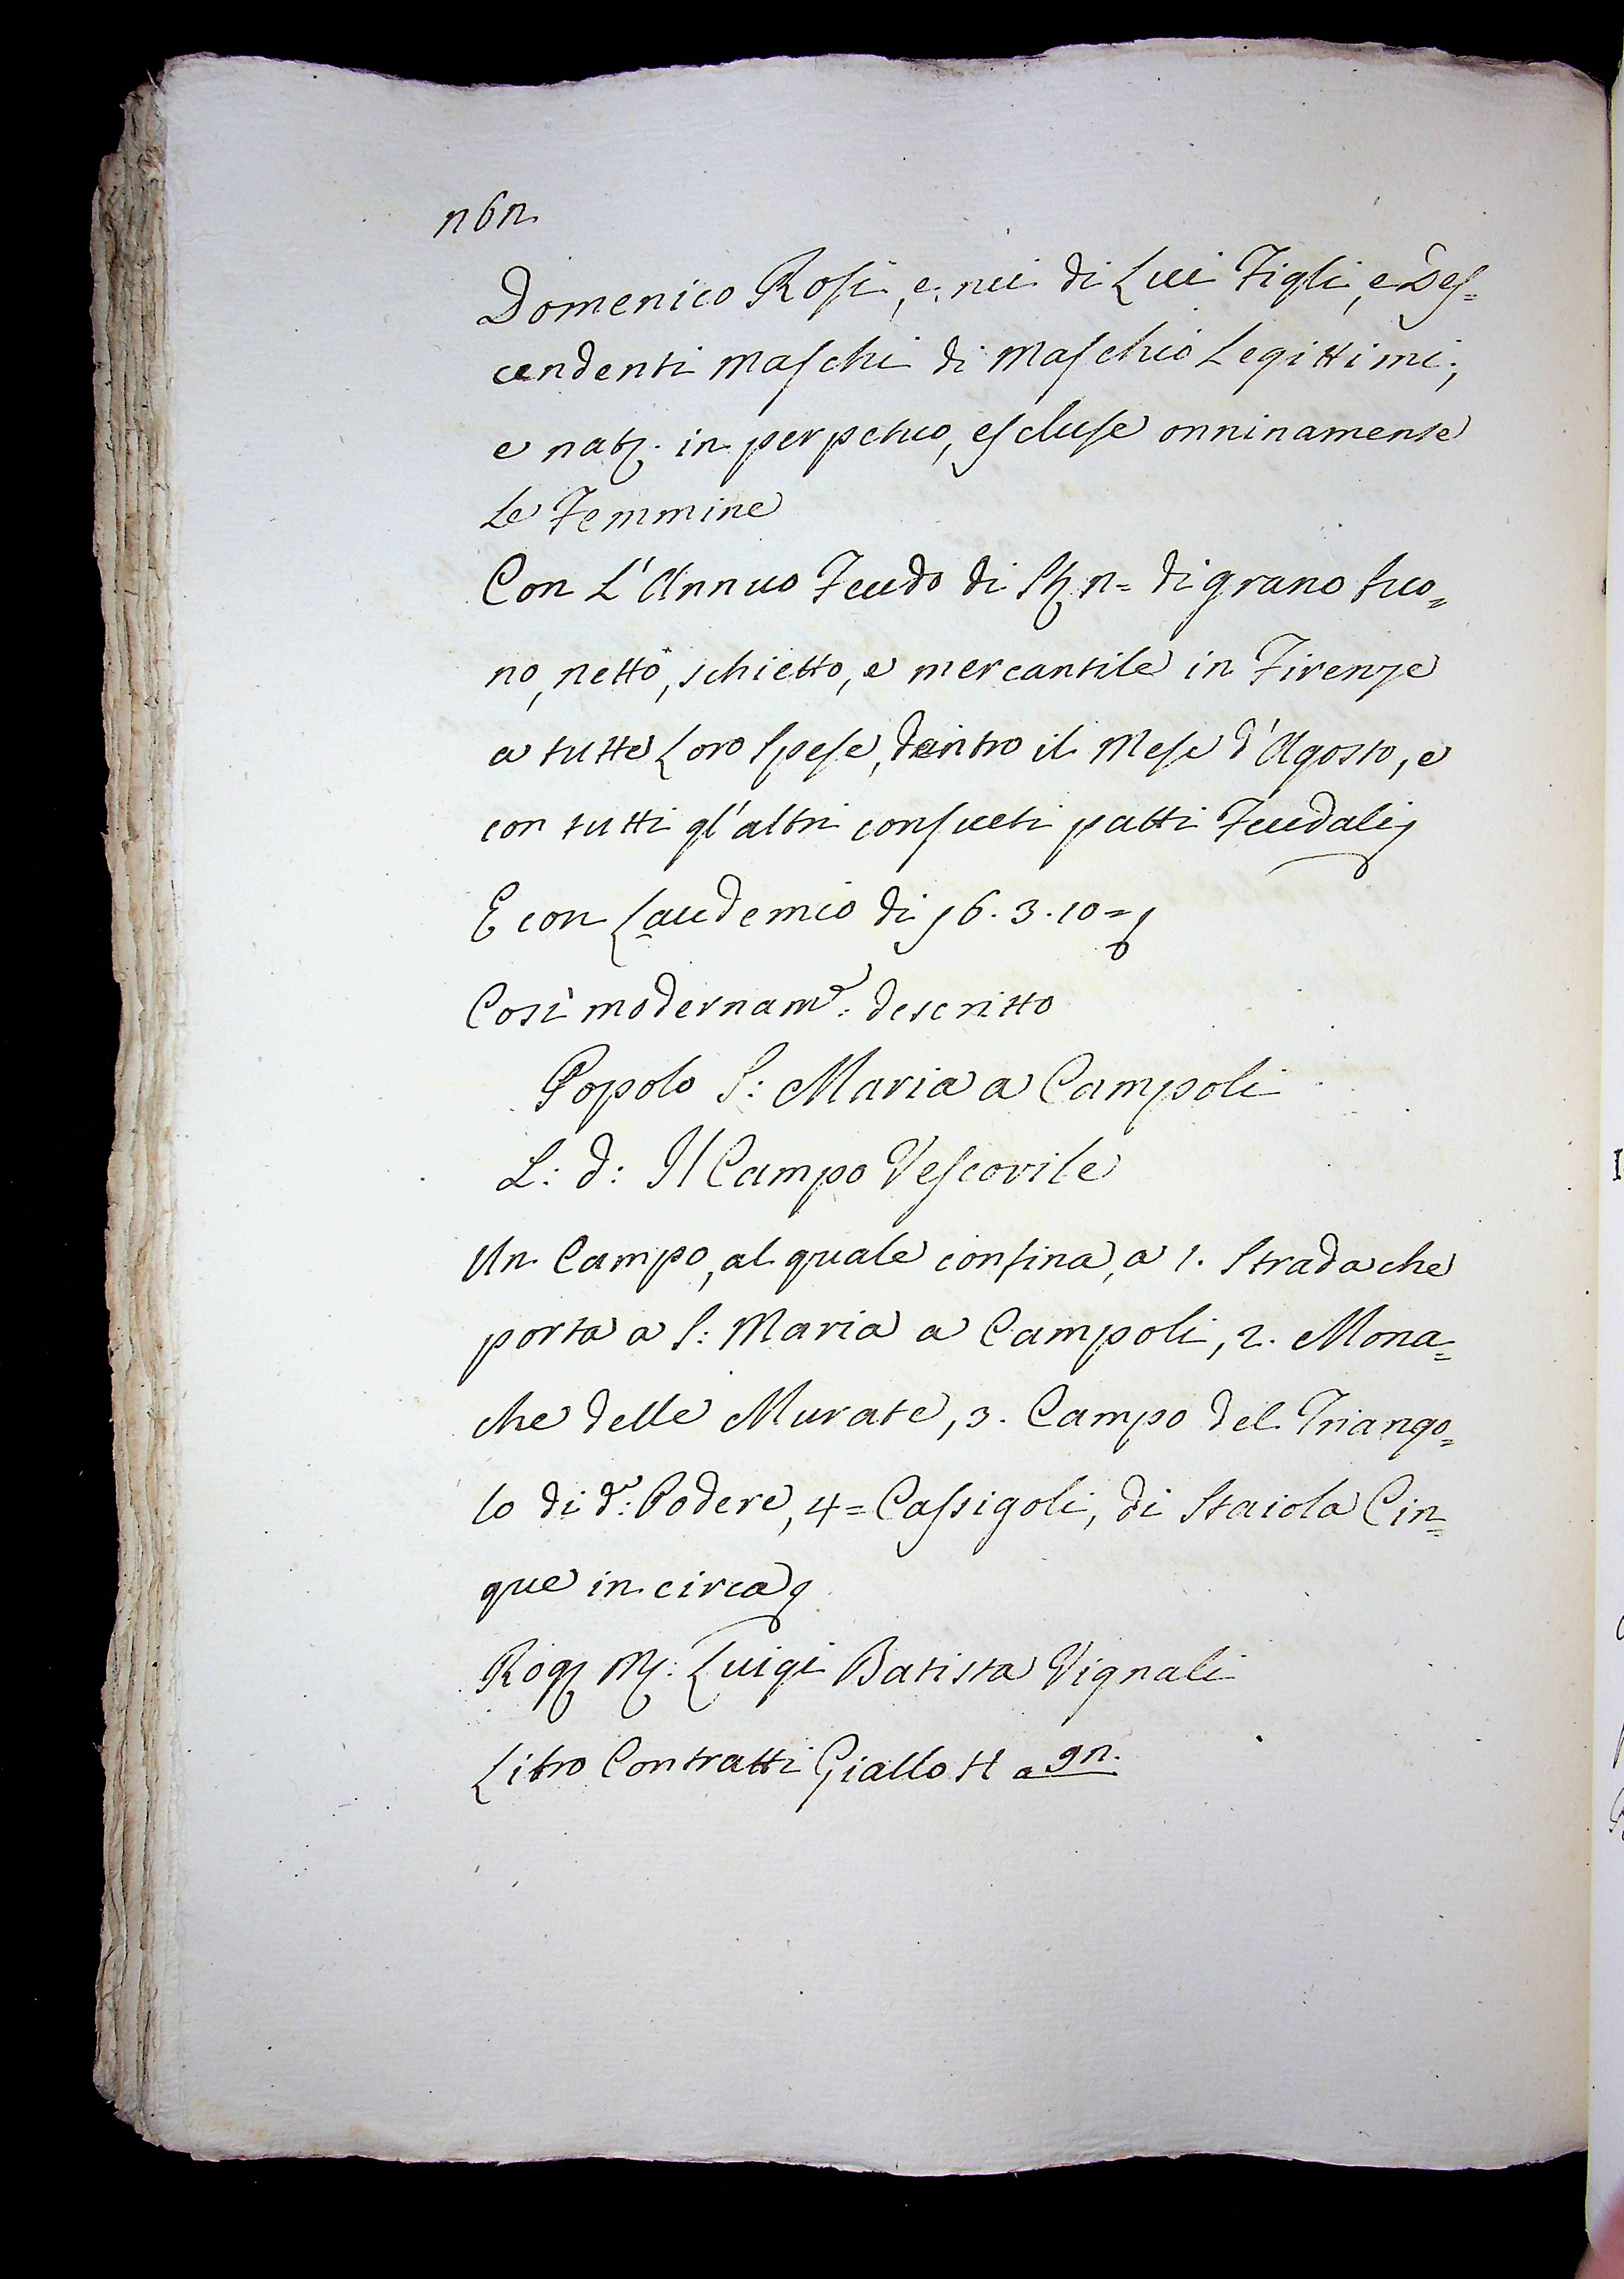 262
Domenico Rosi, e nei di Lui Figli, e Des=
cendenti Maschi di Maschio Legittimi,
e natj. in perpetuo, escluse onninamente
Le Femmine
Con L'Annuo Feudo di St. 2= di grano buo=
no, netto, schietto, e mercantile in Firenze
a tutte Loro Spese, dentro il Mese d'Agosto, e
con tutti gl'altri consueti patti Feudali
E con Laudemio di 56.3.10=
Così modernam.e: descritto
Popolo S: Maria a Campoli
L: d: Il Campo Vescovile
Un Campo, al quale confina, a 1. Strada che
porta a S: Maria a Campoli, 2. Mona=
che delle Murate, 3. Campo del Triango=
lo di d.o: Podere, 4= Cassigoli, di Staiola Cin=
que in circa
Rog. M. Luigi Batista Vignali
Libro Contratti Giallo H a 92.